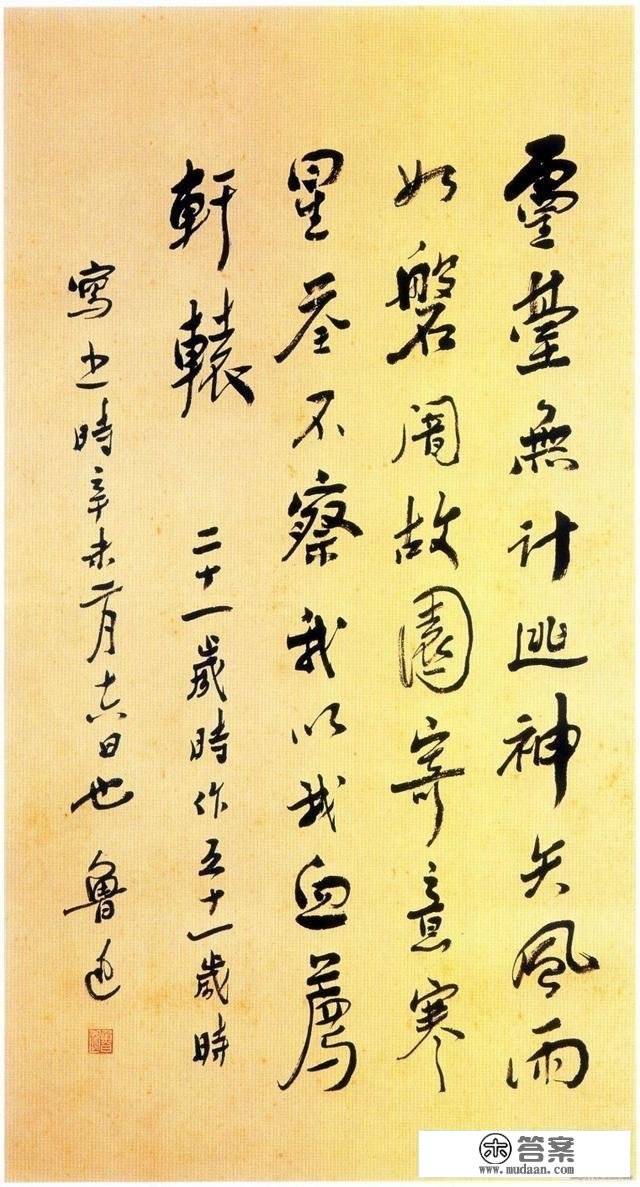 靈臺無計逃神矢風雨
如磐闇故園寄意寒
星荃不察我以我血薦
軒轅
二十一歲時作五十一歲時
寫之時辛未二月十六日也 魯迅
答案
www.mudaan.com